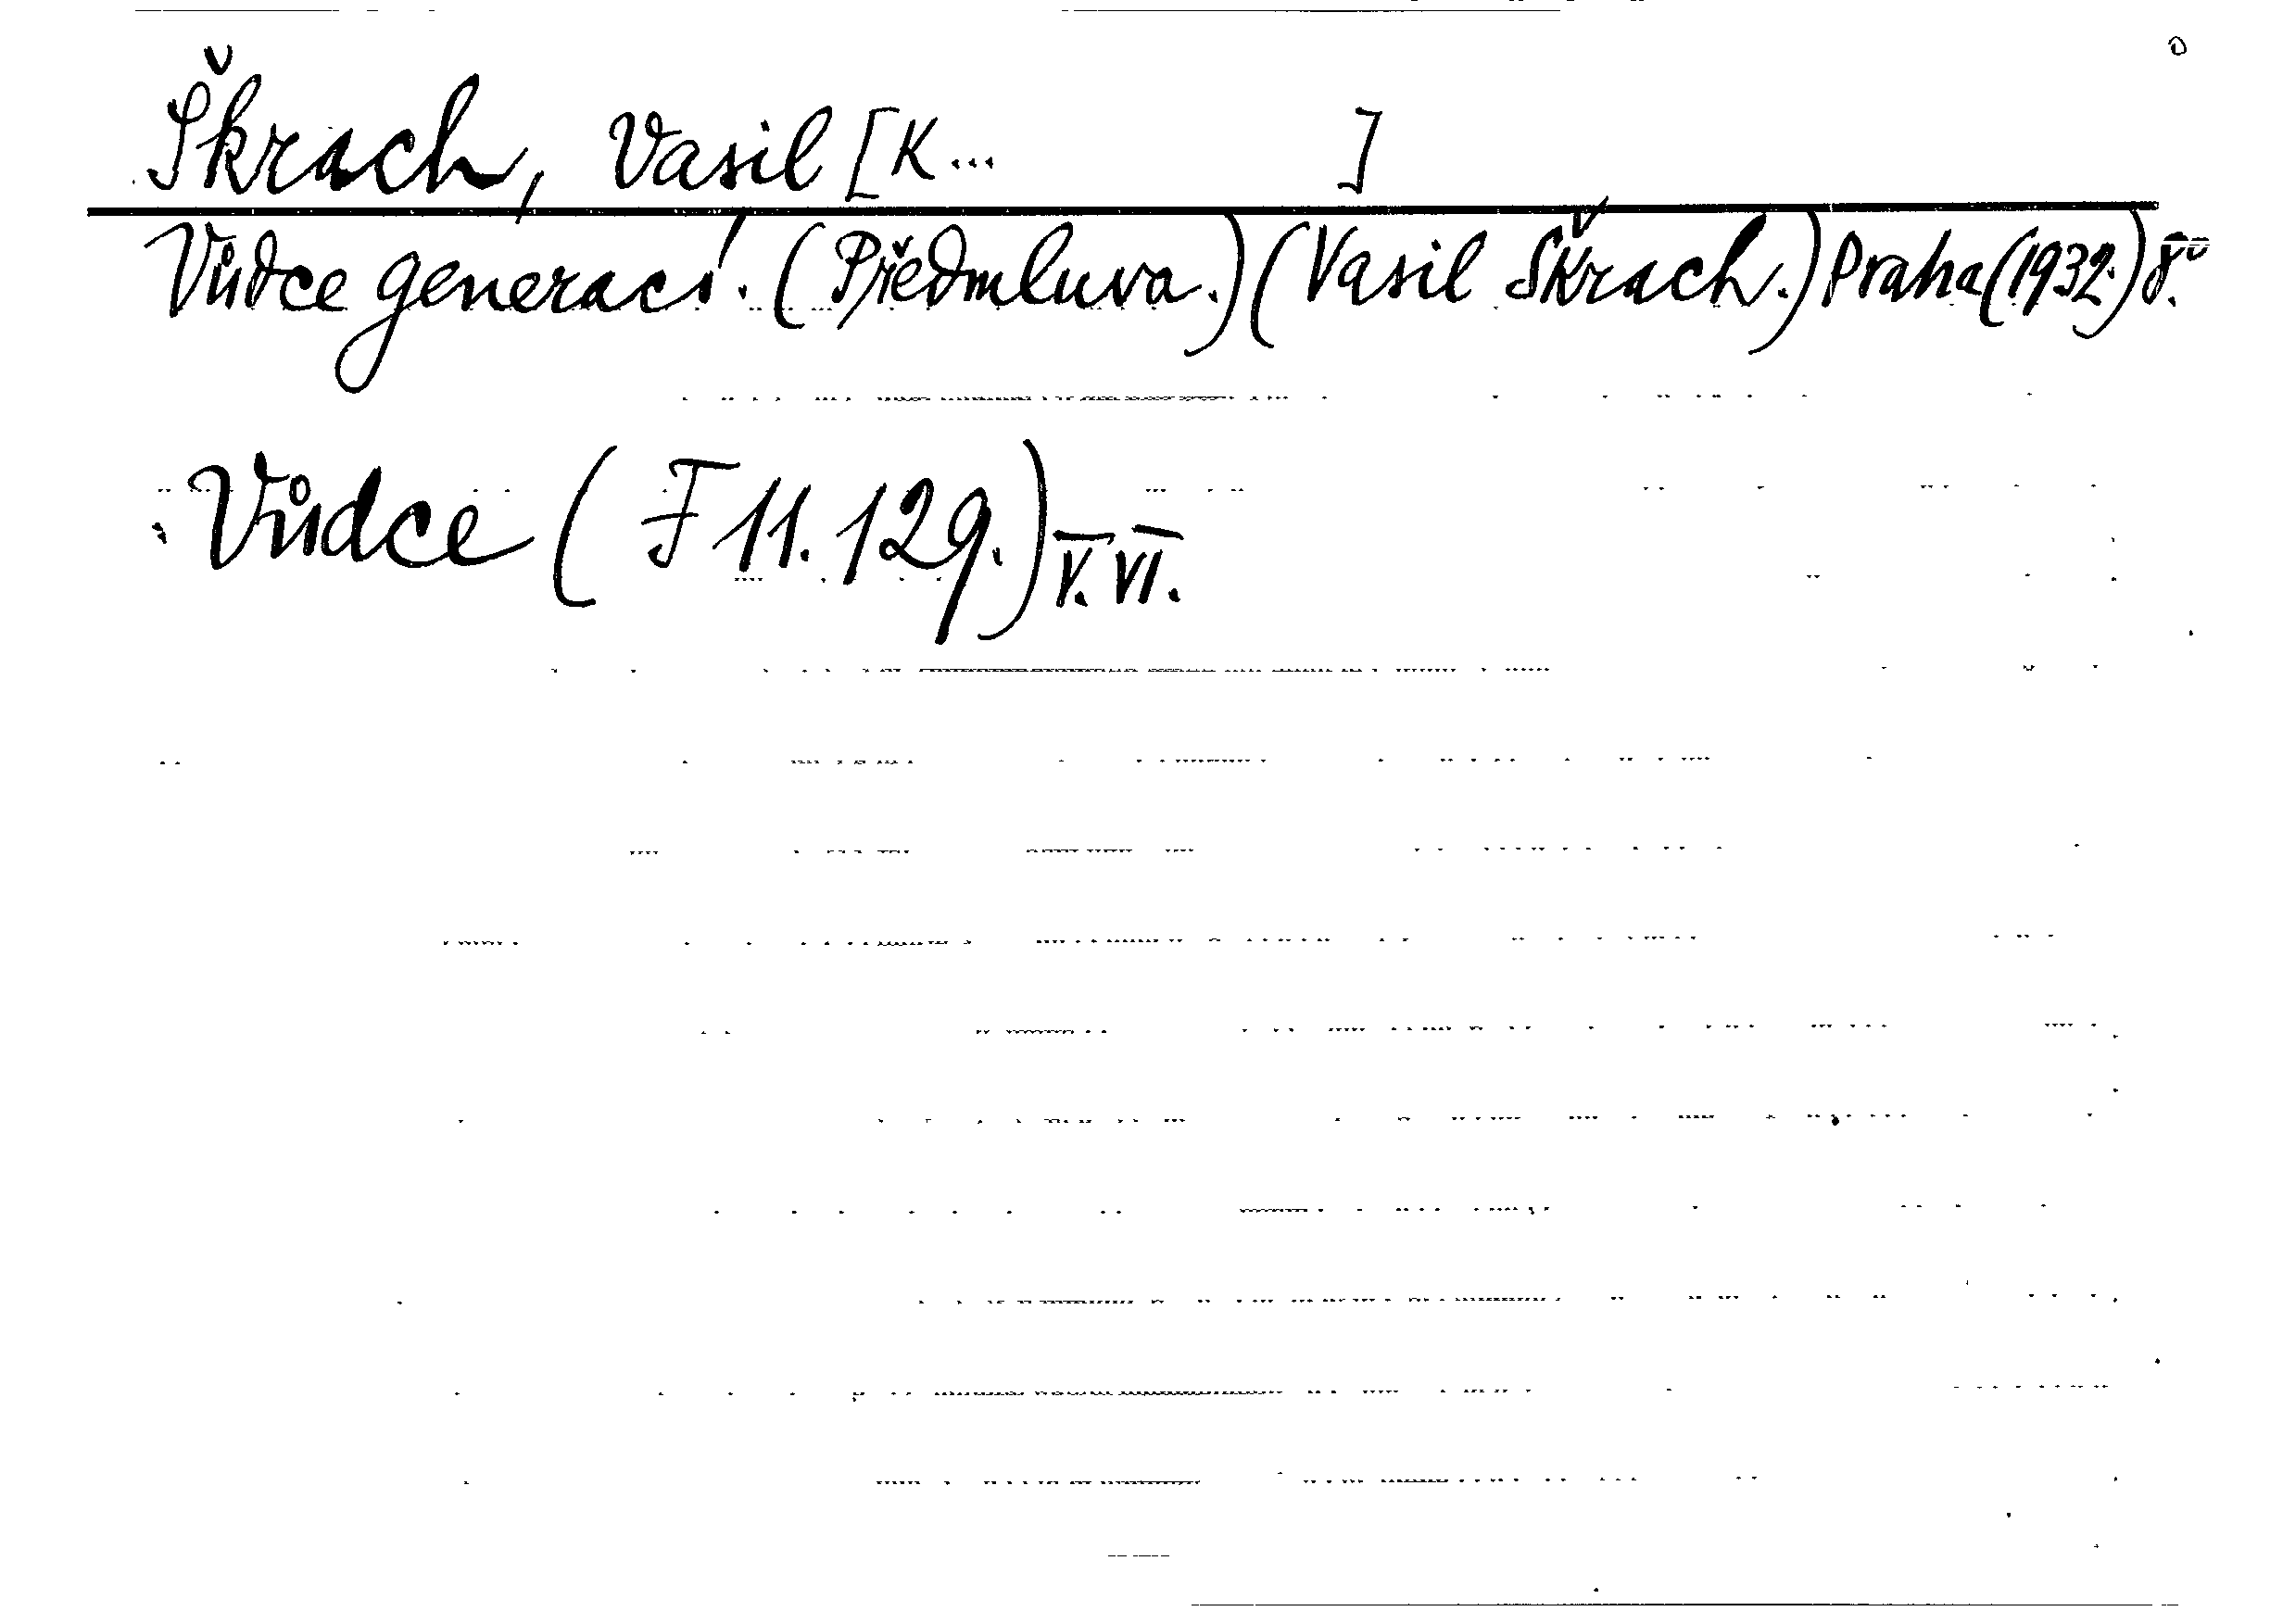 Škrach, Vasil [K... ]
Vůdce generací. (Předmluva.) (Vasil Škrach.) Praha (1932.) 8°.
Vůdce ( F 11.129.) V. VI.